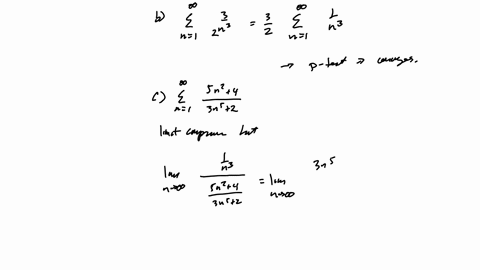 b) ∞ Σ n=1 3/2n³ = 3/2 ∞ Σ n=1 1/n³
→ p-test ⇒ converges.
c) ∞ Σ n=1 5n²+4/3n⁵+2
limit compare test
lim n→∞ (1/n³)/((5n²+4)/(3n⁵+2)) = lim n→∞ 3n⁵